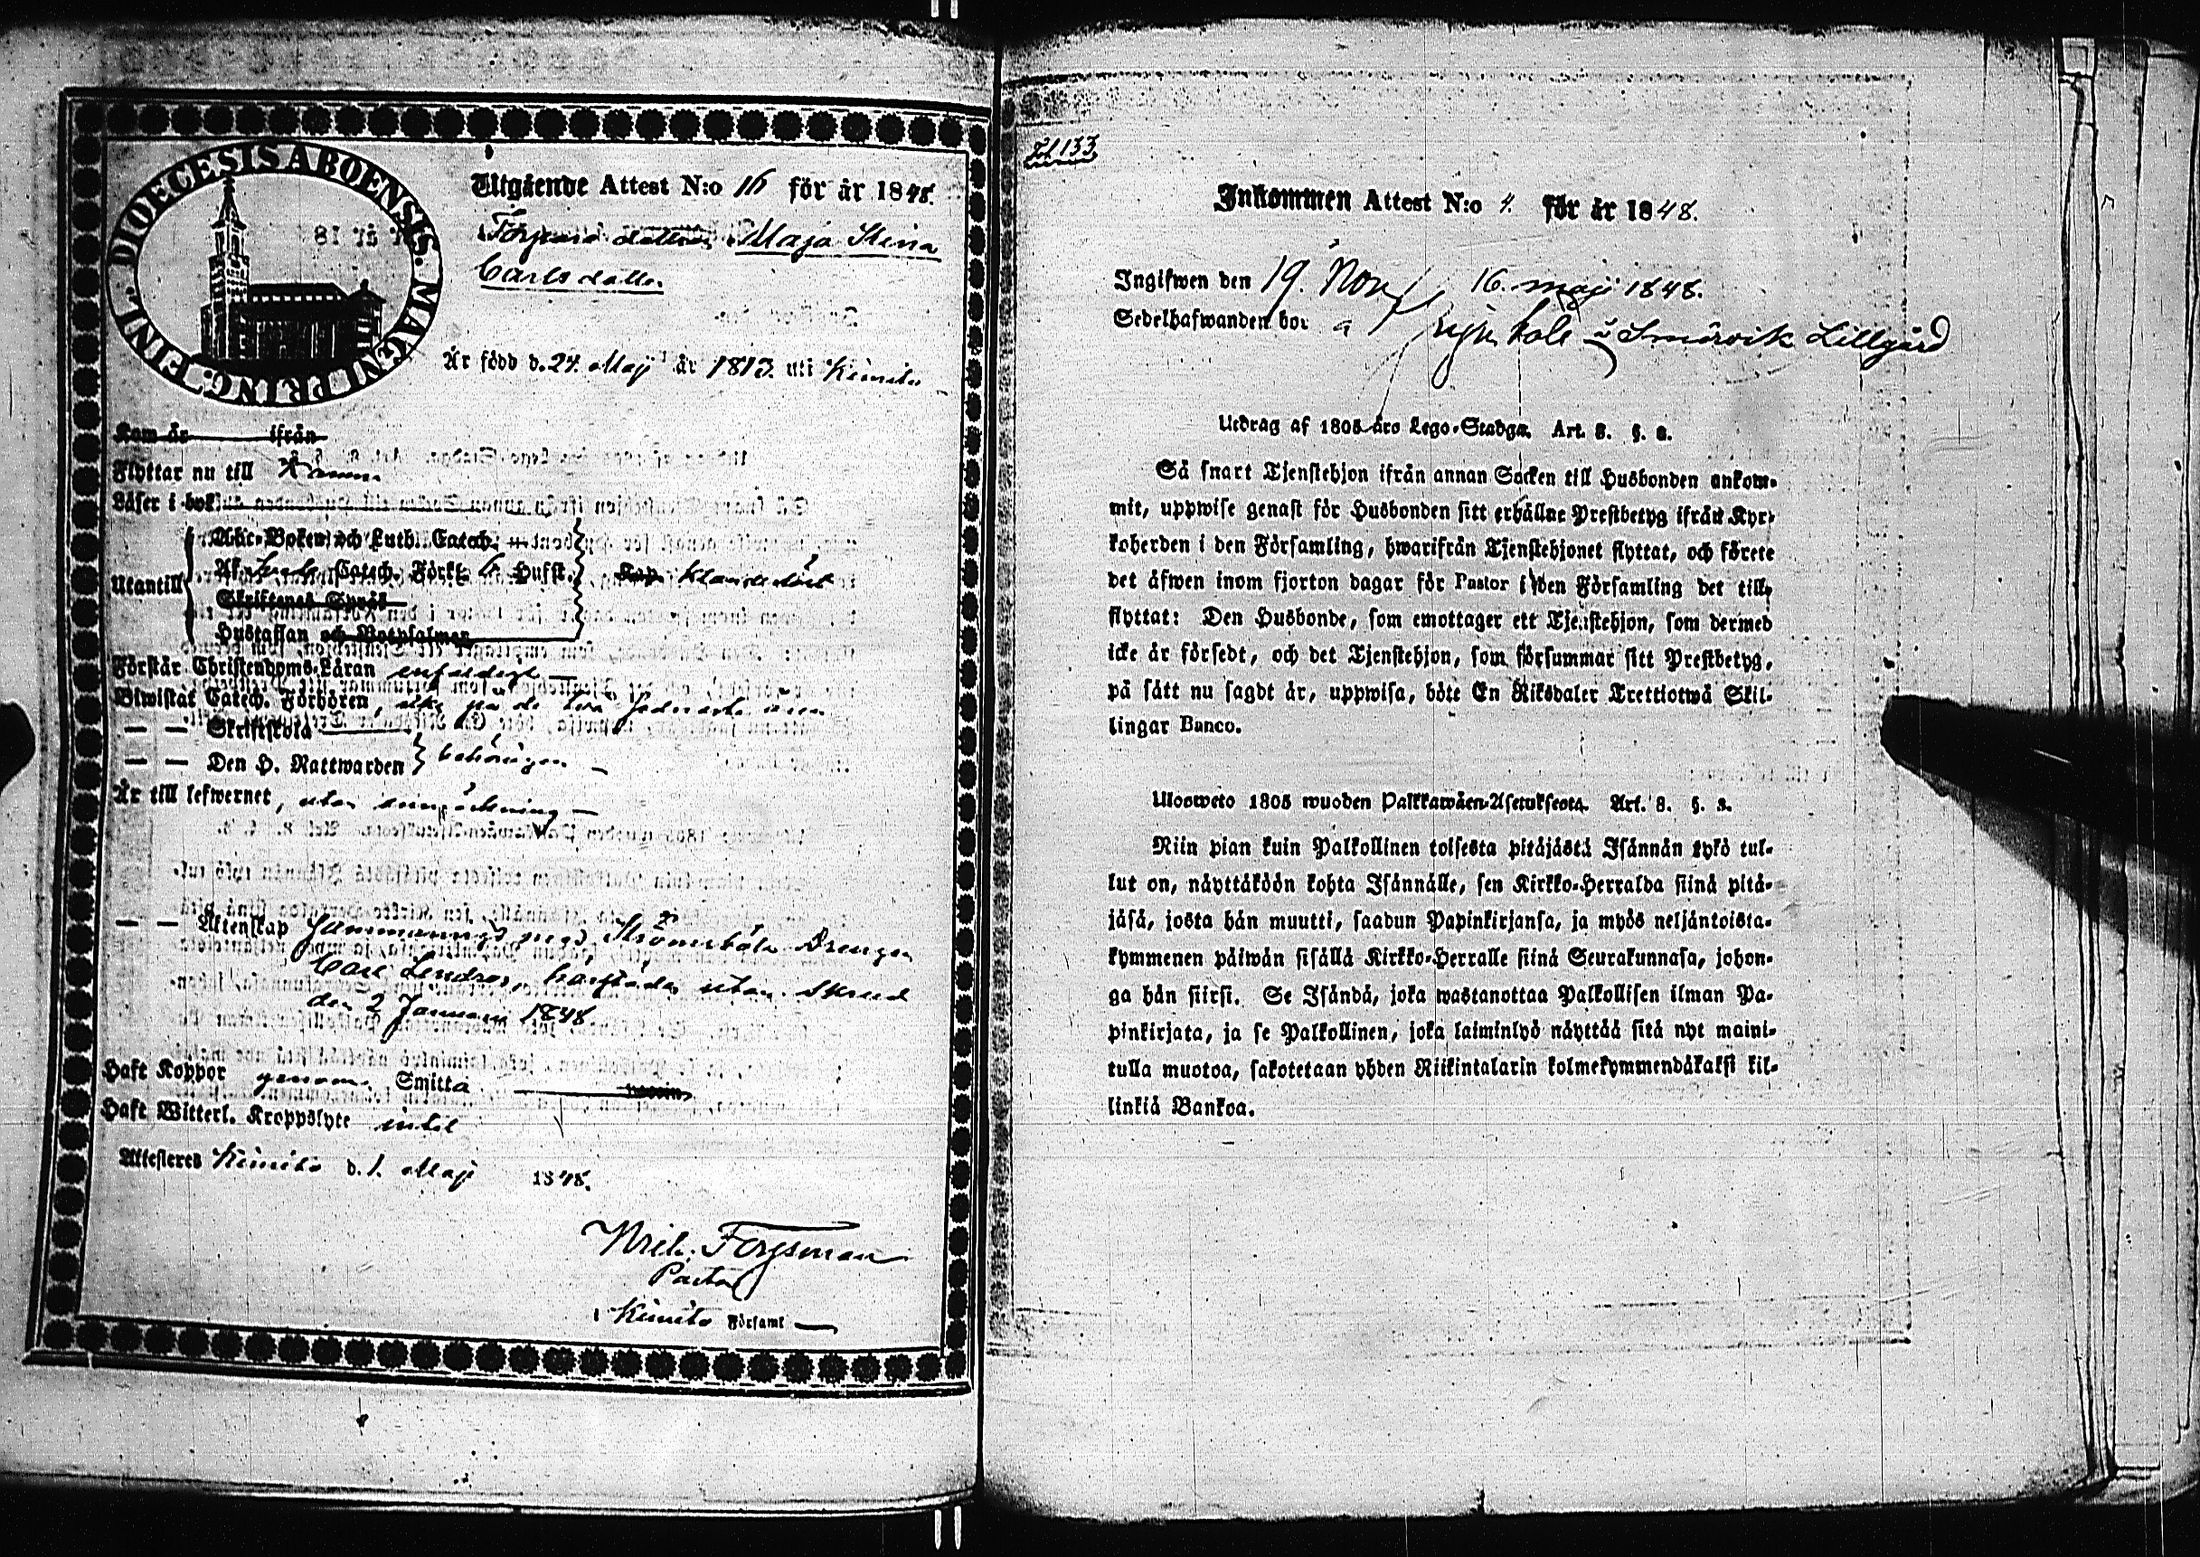 FINL. DIOECESIS ABOENSIS. MAGNI PRING.
Utgående Attest N:o 16 för år 1848.
Maja Stina
Carlsdotter
Är född d. 24. Maji år 1813. uti Kimito
Kom år ifrån
Flyttar nu till
Läser i bok
Utantill
Abc-Boken och Luth. Catech.
Af Catech. Förkl. 6 Hufst.
Skriftenes Språk
Hustaflan och Botpsalmer
Förstår Christendoms-Läran enfaldigt
Biwistat Catech. Förhören, icke på de två sednaste åren
— — Skriftskola
— — Den H. Nattwarden behörigen
Är till lefwernet, utan anmärkning
— — Äktenskap med Strömsböle Drengen
Carl Lindros, utan
den 2 Januari 1848
Haft Koppor genom Smitta
Haft Witterl. Kroppslyte intet
Attesteras Kimito d. 1. Maji 1848.
Forssman
Pastor
i Kimito Församl
Fol 133
Inkommen Attest N:o 4. för år 1848.
Ingifwen den 19. Nov 16. maji 1848.
Sedelhafwanden bor å Smörvik Lillgård
Utdrag af 1805 års Lego-Stadga. Art. 8. §. 2.
Så snart Tjenstehjon ifrån annan Socken till Husbonden ankom-
mit, uppwise genast för Husbonden sitt erhållne Prestbetyg ifrån Kyr-
koherden i den Församling, hwarifrån Tjenstehjonet flyttat, och förete
det äfwen inom fjorton dagar för Pastor i den Församling det till-
flyttat: Den Husbonde, som emottager ett Tjenstehjon, som dermed
icke är försedt, och det Tjenstehjon, som försummar sitt Prestbetyg,
på sätt nu sagdt är, uppwisa, böte En Riksdaler Trettiotwå Skil-
lingar Banco.
Ulosweto 1805 wuoden Palkkawäen-Asetuksesta. Art. 8. §. 2.
Niin pian kuin Palkollinen toisesta pitäjästä Isännän tykö tul-
lut on, näyttäköön kohta Isännälle, sen Kirkko-Herralda siinä pitä-
jäsä, josta hän muutti, saadun Papinkirjansa, ja myös neljäntoista-
kymmenen päiwän sisällä Kirkko-Herralle siinä Seurakunnasa, johon-
ga hän siirsi. Se Isändä, joka wastanottaa Palkollisen ilman Pa-
pinkirjata, ja se Palkollinen, joka laiminlyö näyttää sitä nyt maini-
tulla muotoa, sakotetaan yhden Riikintalarin kolmekymmendäkaksi kil-
linkiä Bankoa.